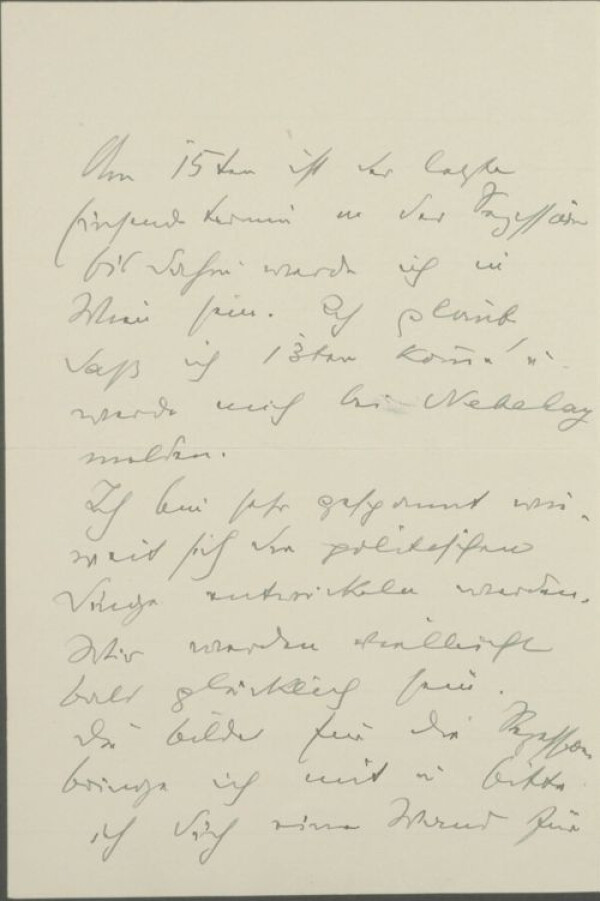 Am 15ten ist der letzte
Einsende termin in der Sezession
bis dahin werde ich in
Wien sein. Ich glaub
daß ich 13ten komme u.
werde mich bei Nebehay
melden.
Ich bin sehr gespannt wie
weit sich die politischen
Dinge entwickeln werden.
Wir werden vielleicht
bald glücklich sein.
Die bilder für die Sezession
bringe ich mit u bitte
ich dich eine Wand für